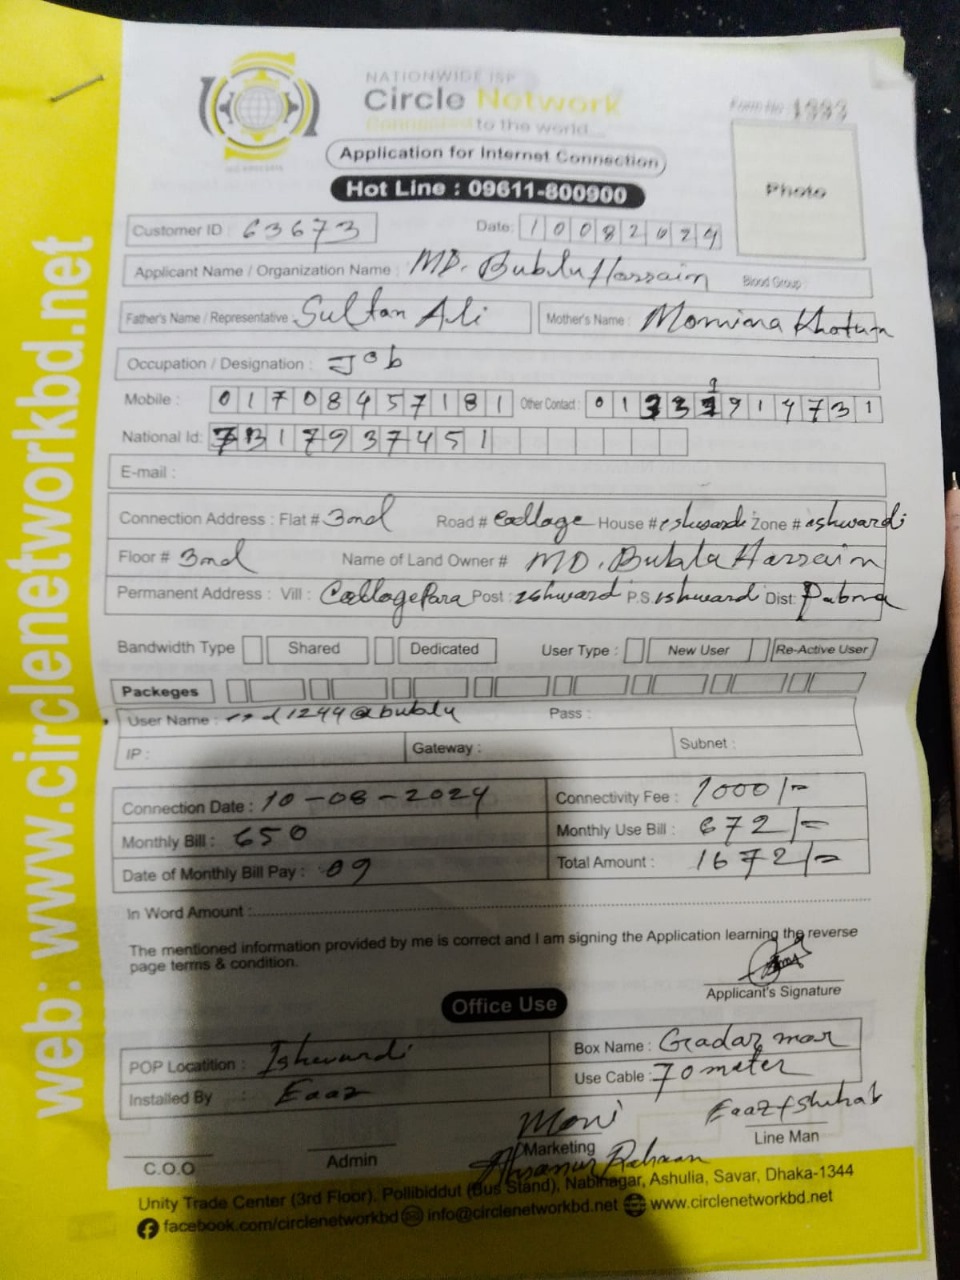 NATIONWIDE ISP
Circle Network
Connected to the world...
Form No. 1993
Application for Internet Connection
Hot Line : 09611-800900
Photo
Customer ID : 63673 Date: 10082024
Applicant Name / Organization Name : MD. Bublu Hossain Blood Group :
Father's Name / Representative : Sultan Ali Mother's Name : Momina Khatun
Occupation / Designation : Job
Mobile : 01708457181 Other Contact : 01914731
National Id: 7317937451
E-mail :
Connection Address : Flat # 3nd Road # Collage House # eshwardi Zone # ishwardi
Floor # 3nd Name of Land Owner # MD. Bubla Hassain
Permanent Address : Vill : Collagepara Post : ishward P.S. ishward Dist: Pabna
Bandwidth Type Shared Dedicated User Type : New User Re-Active User
Packeges
User Name : 1244@bublu Pass :
IP : Gateway : Subnet :
Connection Date : 10-08-2024 Connectivity Fee : 1000/-
Monthly Bill : 650 Monthly Use Bill : 672/-
Date of Monthly Bill Pay : 09 Total Amount : 1672/-
In Word Amount :
The mentioned information provided by me is correct and I am signing the Application learning the reverse
page terms & condition.
Applicant's Signature
Office Use
POP Locatition : Ishwardi Box Name : Gradar mor
Installed By : Eaaz Use Cable : 70 meter
Moni Eaaz + Shihab
C.O.O Admin Marketing Line Man
Ahsanur Rahman
Unity Trade Center (3rd Floor), Pollibiddut (Bus Stand), Nabinagar, Ashulia, Savar, Dhaka-1344
facebook.com/circlenetworkbd info@circlenetworkbd.net www.circlenetworkbd.net
web: www.circlenetworkbd.net